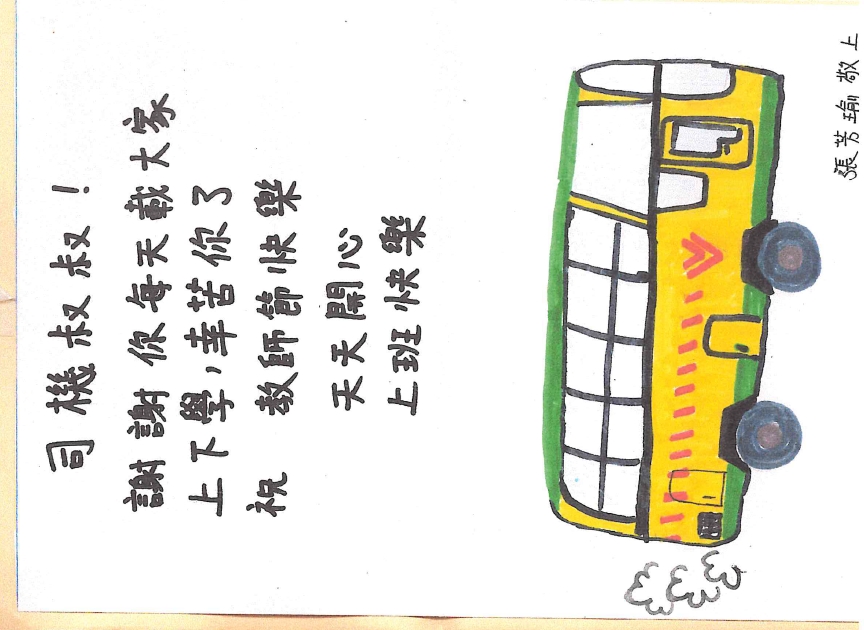 司機叔叔！
謝謝你每天載大家
上下學，辛苦你了
祝 教師節快樂
天天開心
上班快樂
張芳瑜 敬上